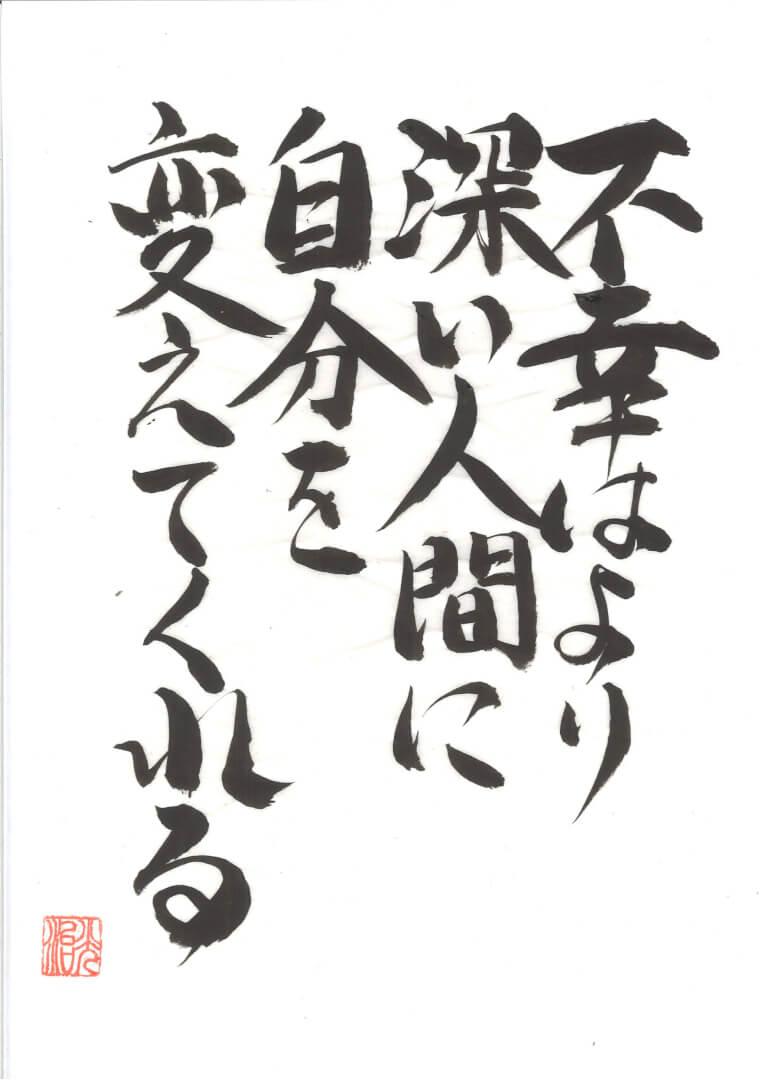 不幸はより
深い人間に
自分を
変えてくれる